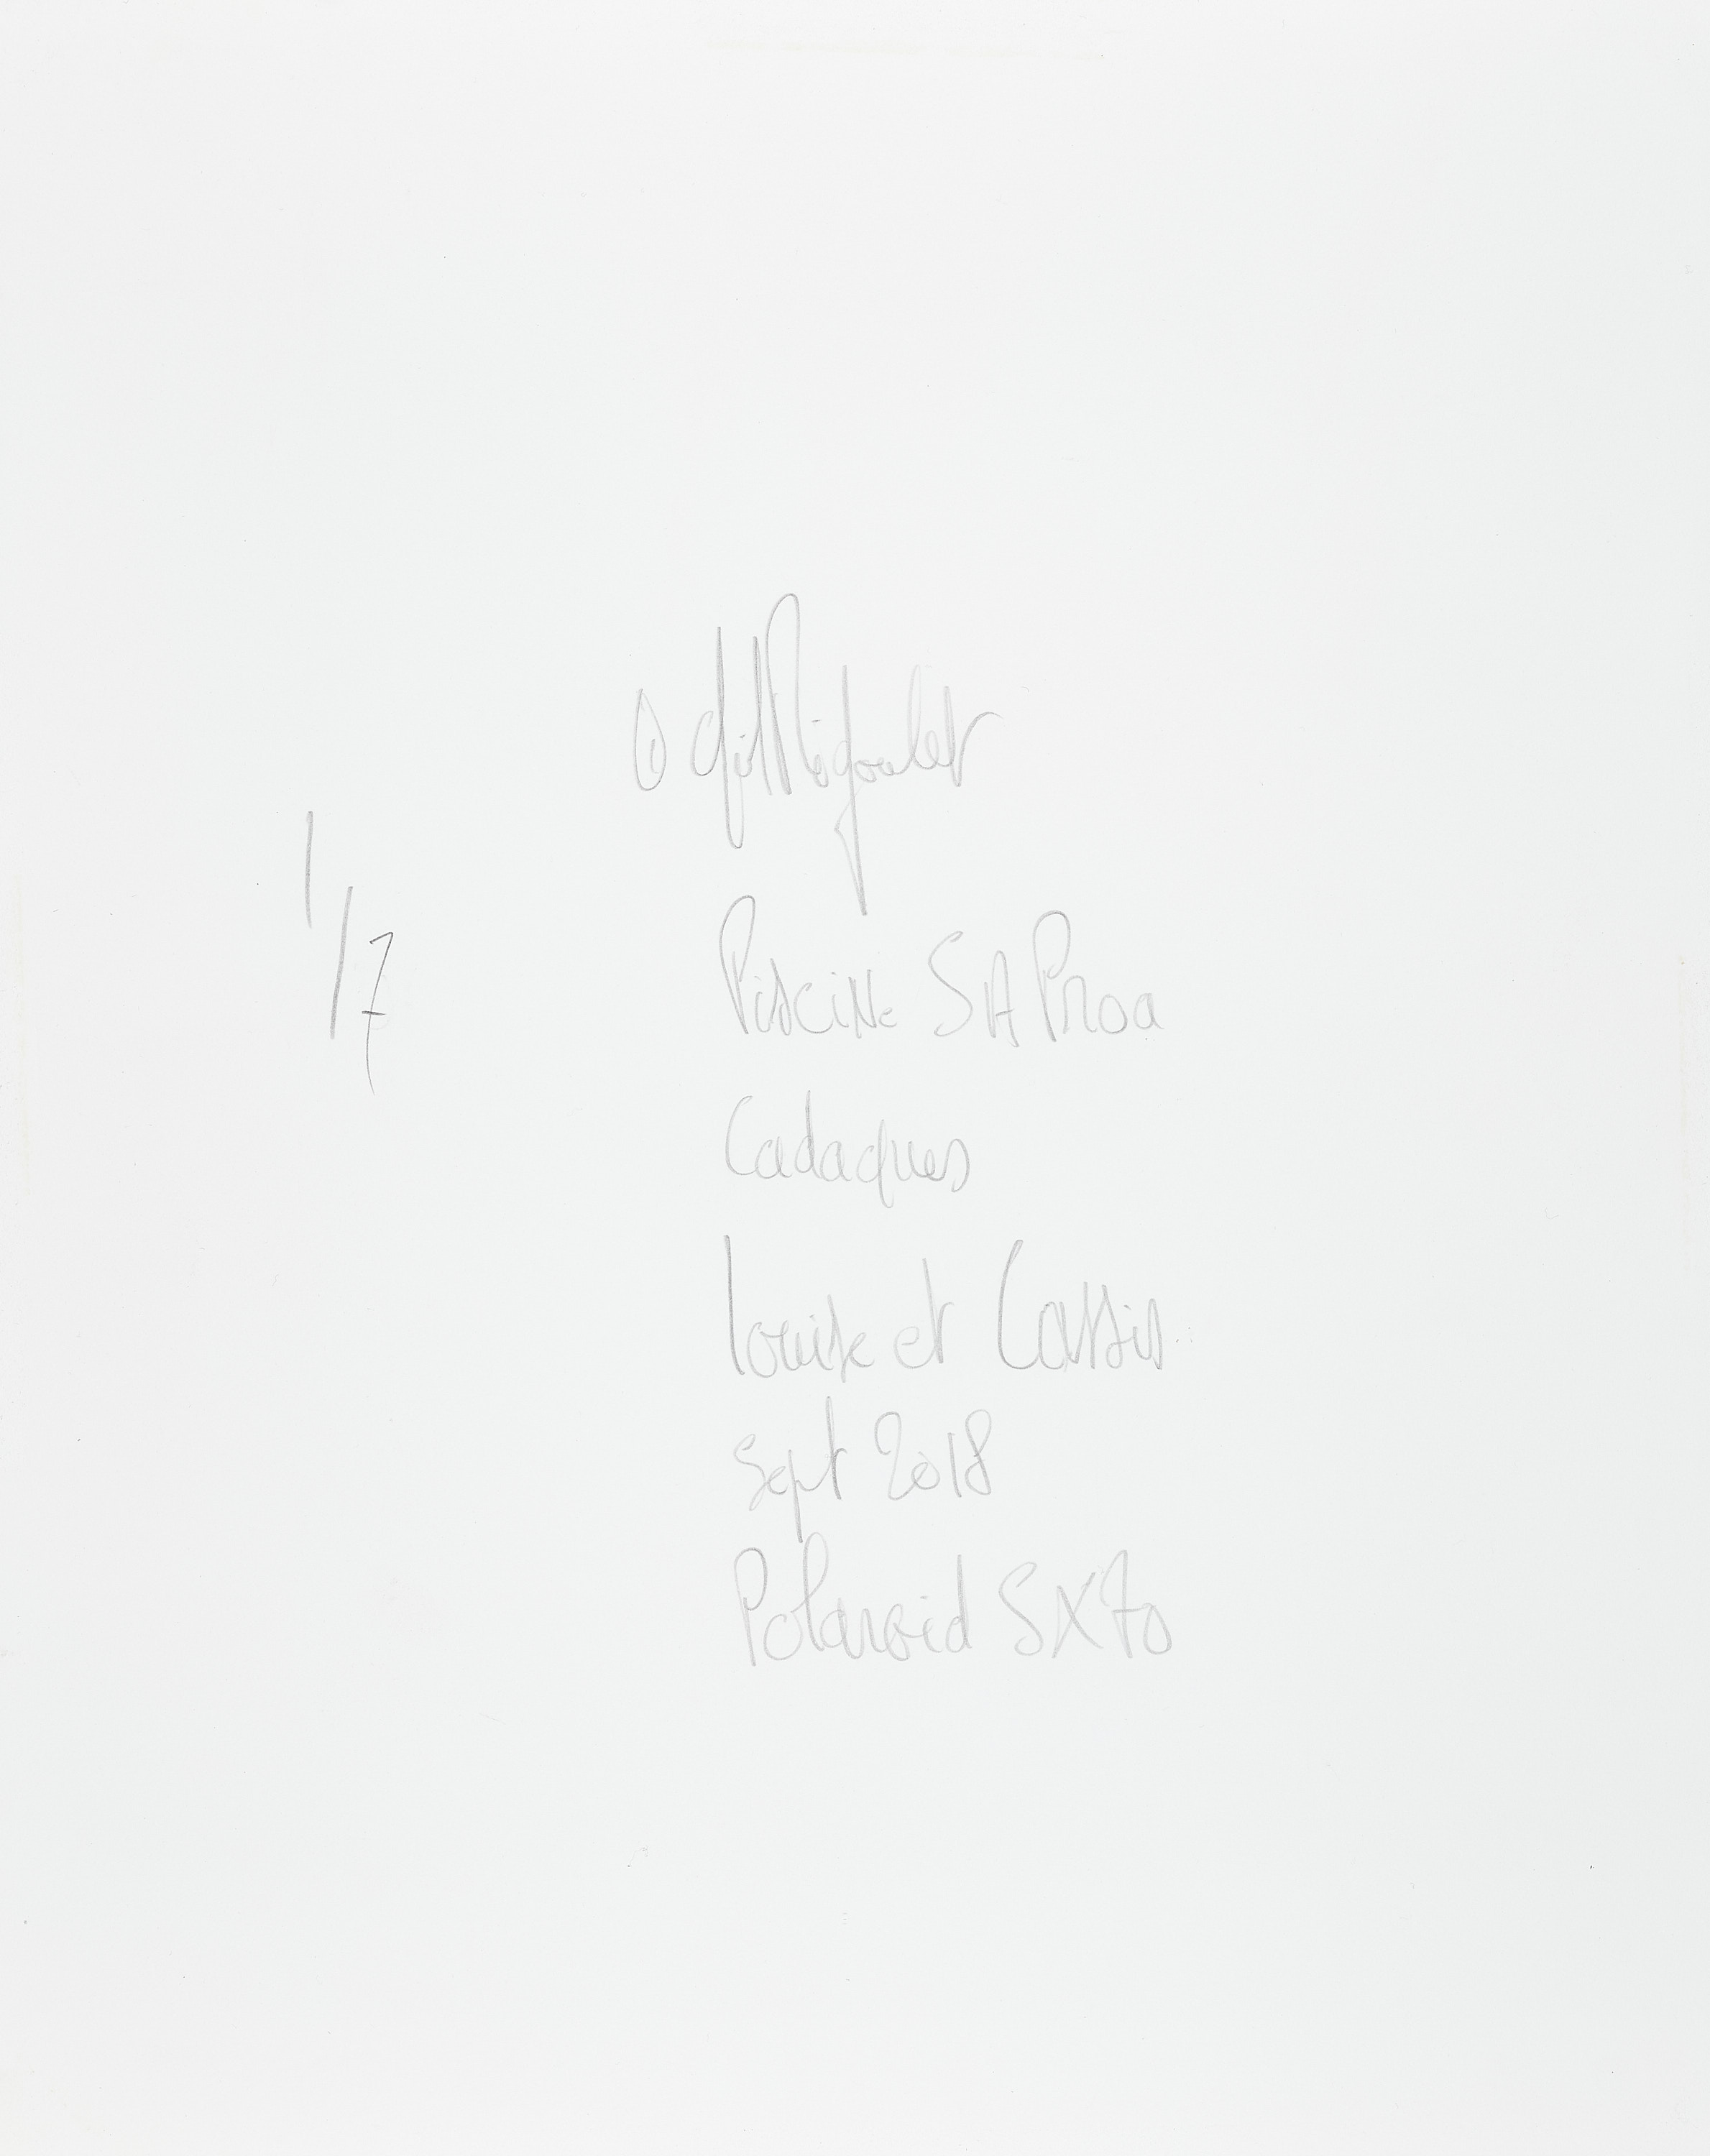 © Gil Rigoulet
1/7
Piscine SA Proa
Cadaques
Louise et Cassis
Sept 2018
Polaroid SX70